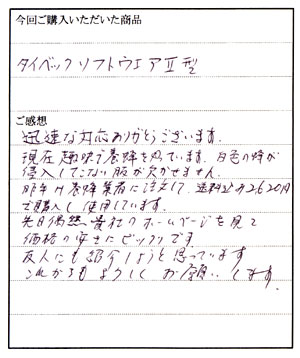 今回ご購入いただいた商品
タイベックソフトウエアⅡ型
ご感想
迅速な対応ありがとうございます。
現在趣味で養蜂を飼ています。白色の蜂が
侵入してこない服が欠かせません。
昨年は養蜂業者に注文して、送料込み2,620円
で購入し使用しています。
先日偶然貴社のホームページを見て
価格の安さにビックリです。
友人にも紹介しようと思っています
これからもよろしくお願いします。